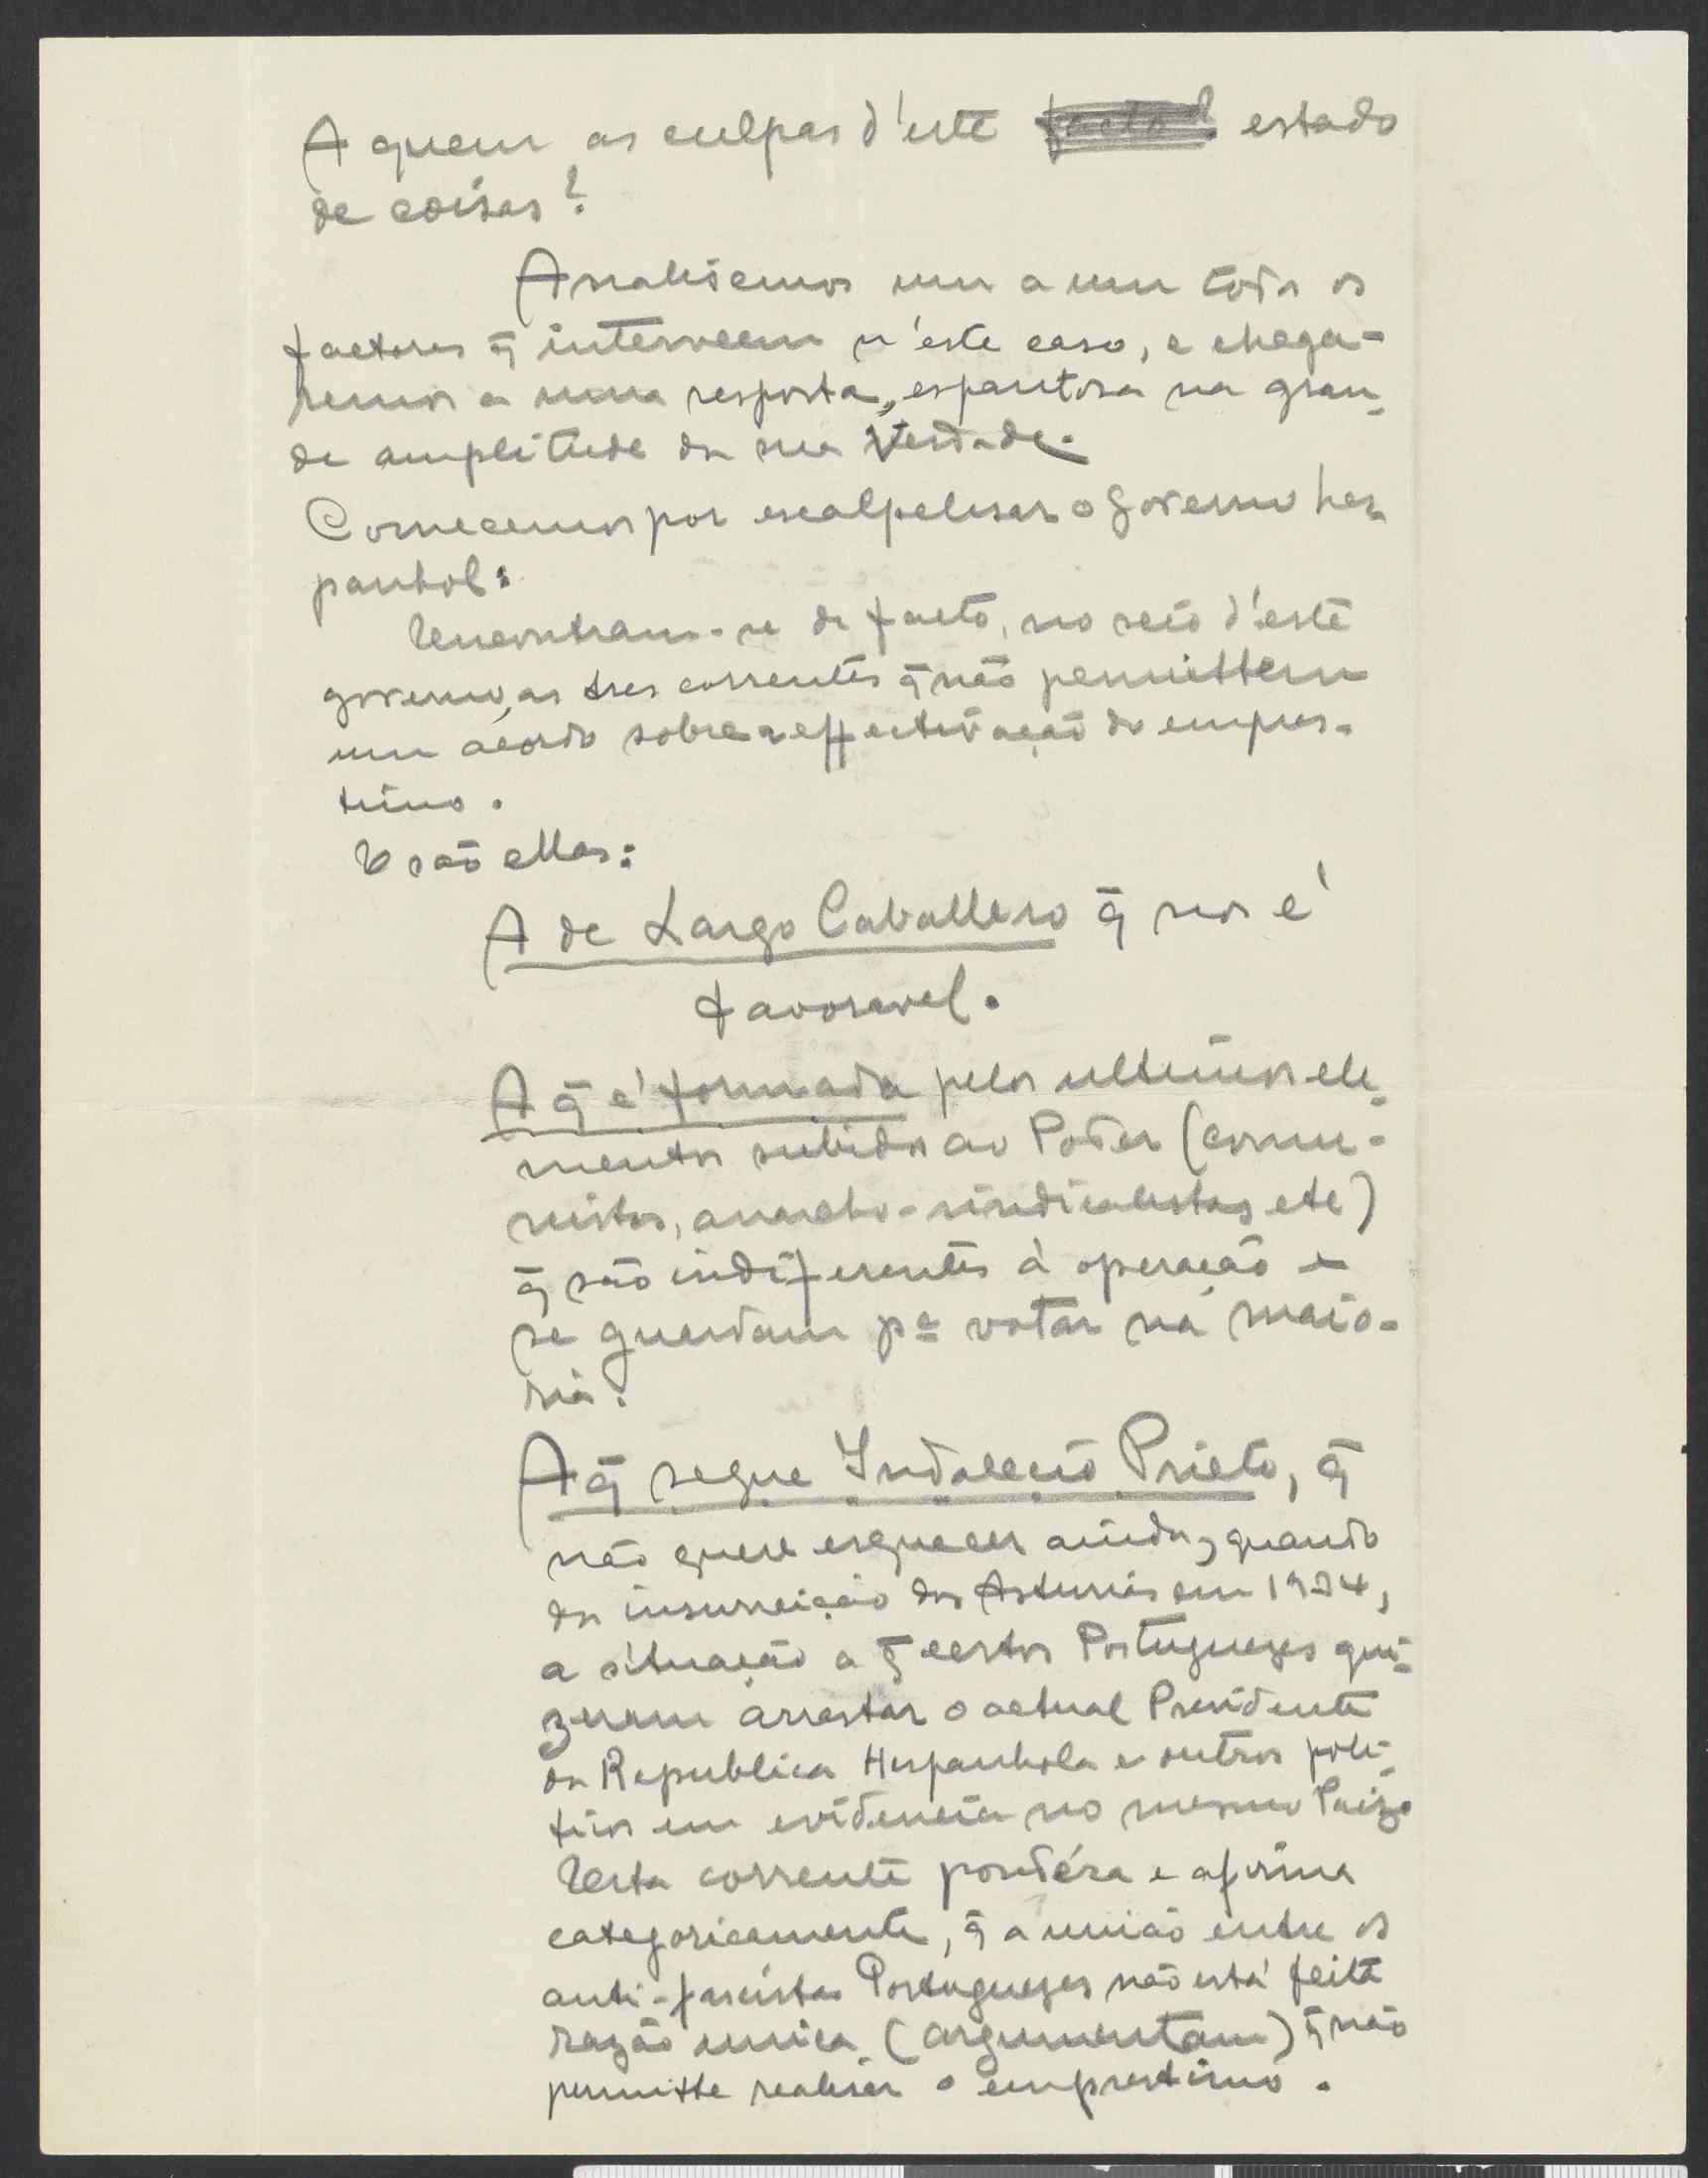 A quem as culpas d'este estado
de coisas?
Analisemos um a um todos os
factores q̃ interveem n'este caso, e chega-
remos a uma resposta, espantosa na gran-
de amplitude da sua Verdade.
Comecemos por escalpelisar o Governo hes-
panhol:
Encontram-se de facto, no seio d'este
governo, as tres correntes q̃ não permittem
um acordo sobre a effectivação do empres-
timo.
E são ellas:
A de Largo Caballero q̃ nos é
favoravel.
A q̃ é formada pelos ultimos ele-
mentos subidos ao Poder (comu-
nistas, anarcho-sindicalistas etc)
q̃ são indiferentes á operação e
se guardam pª votar na maio-
ria.
A q̃ segue Indalecio Prieto, q̃
não quere esquecer ainda, quando
da insurreição das Asturias em 1934,
a situação a q̃ certos Portuguezes qui-
zeram arrastar o actual Presidente
da Republica Hespanhola e outros poli-
ticos em evidencia no mesmo Paiz.
Esta corrente pondéra e afirma
categoricamente, q̃ a união entre os
anti-fascistas Portuguezes não está feita
razão unica (argumentam) q̃ não
permitte realisar o emprestimo.